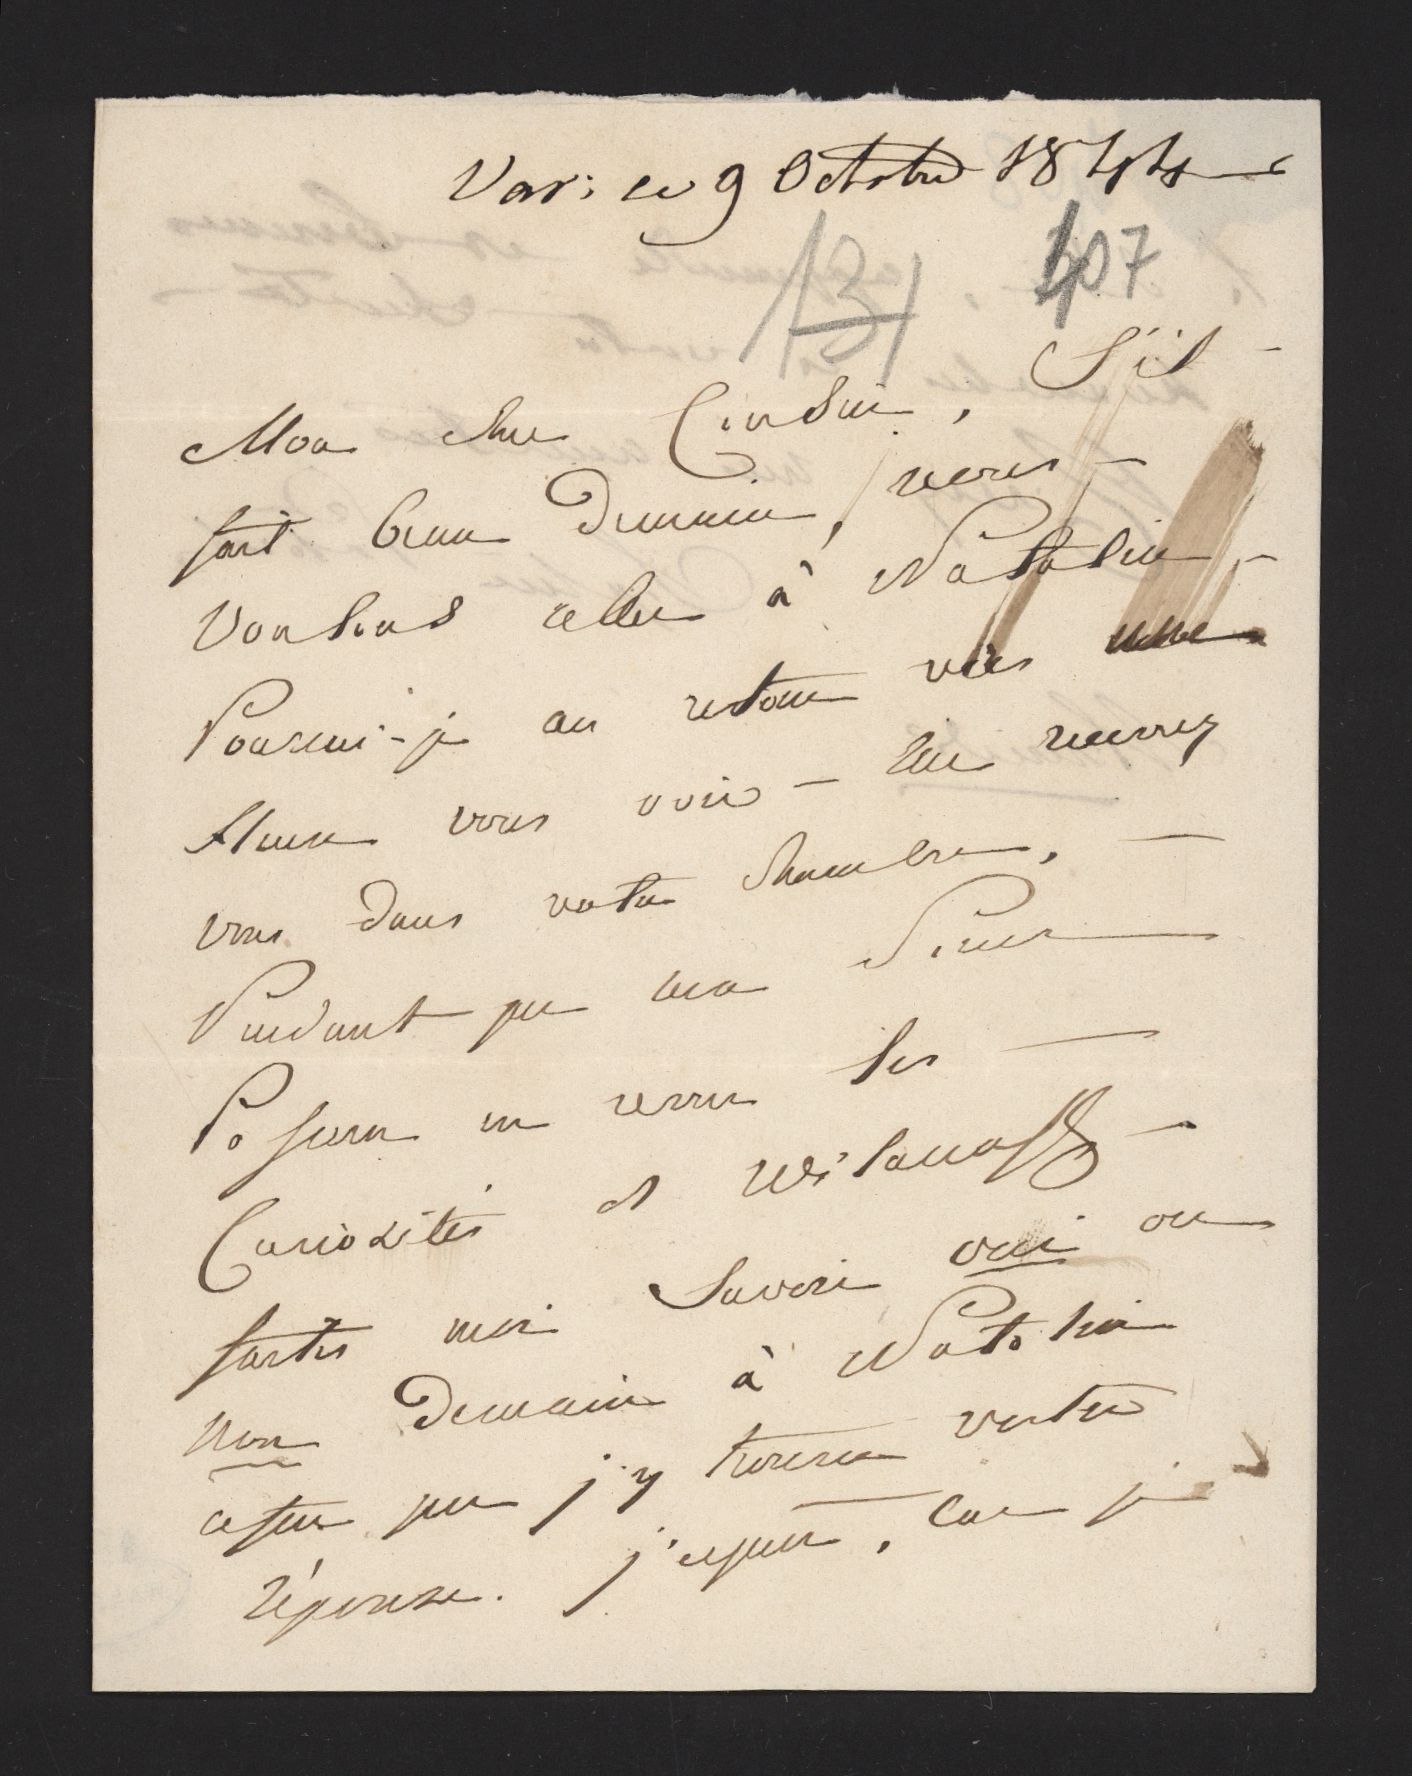 Vars: ce 9 Octobre 1844
131 107
Mon cher Cousin, S'il
fait beau Demain, nous
voulons aller à Natolin
Pourrai-je au retour vers
vous voir
vous dans votre chambre,
Pendant que ma Soeur
Po verra les
Curiosités d Wilanoff
faites moi savoir oui ou
non Demain à Natolin
afin que j'y trouve votre
réponse. j'espère, car je